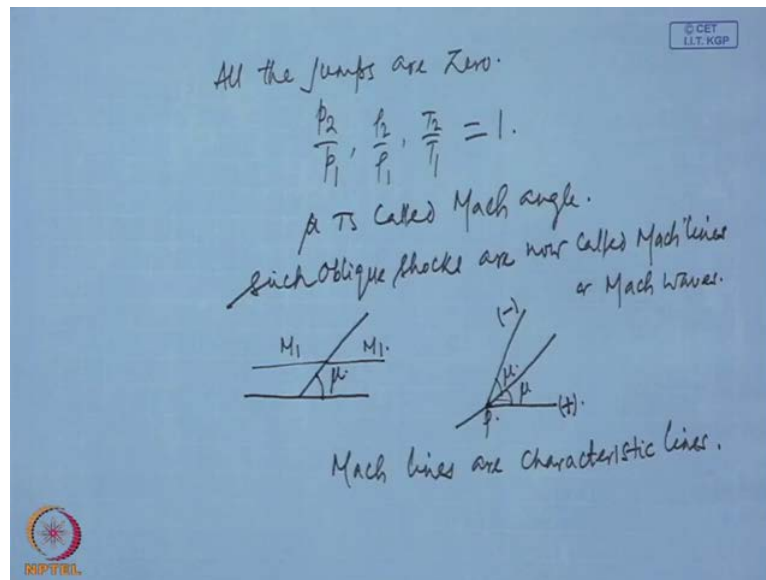 © CET
I.I.T. KGP
All the jumps are Zero.
p2/p1, ρ2/ρ1, T2/T1 = 1.
μ is called Mach angle.
Such Oblique shocks are now called Mach lines
or Mach waves.
M1 M1.
μ.
(-)
μ.
μ
(+).
P.
Mach lines are characteristic lines.
NPTEL